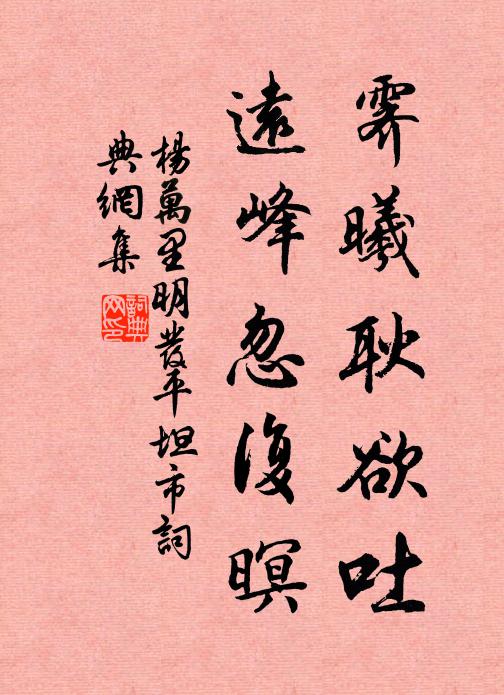 霽曦耿欲吐
遠峰忽復暝
楊萬里明發平坦市詞
典網集
詞典
网印